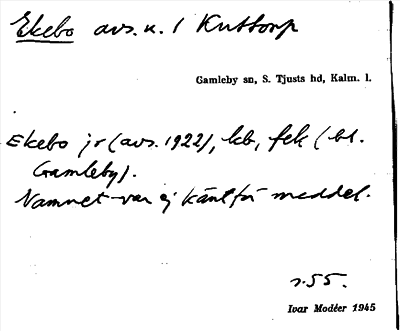 Ekebo avs. u. 1 Kuttorp
Gamleby sn, S. Tjusts hd, Kalm. l.
Ekebo jr (avs. 1922), kb, fek (bl.
Gamleby).
Namnet var ej känt för meddel.
s. 55.
Ivar Modéer 1945